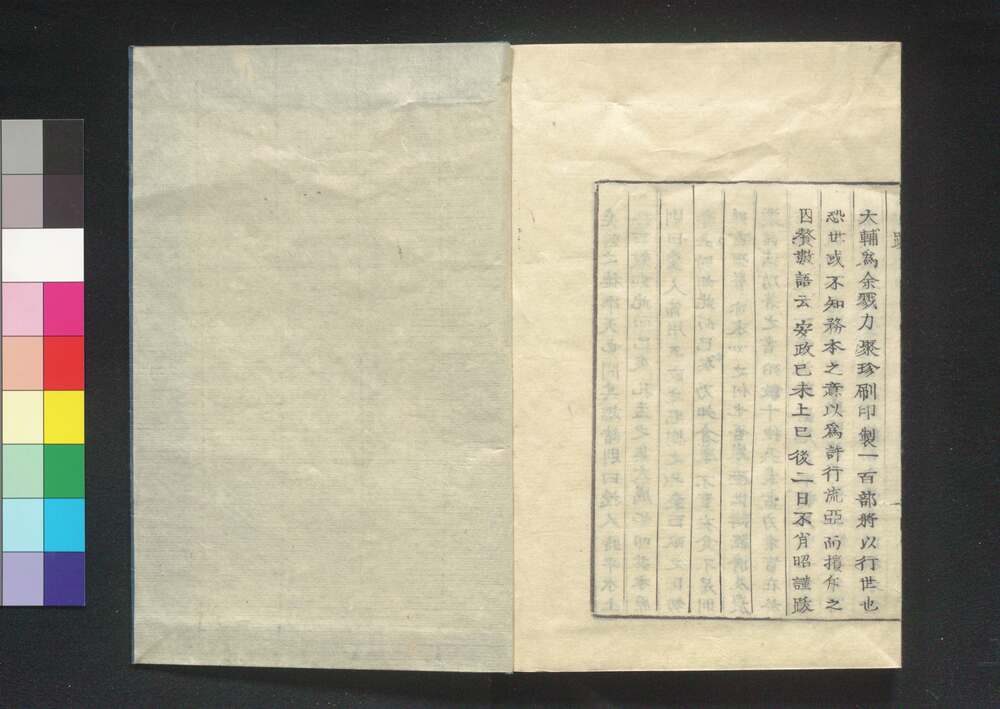 跋
大輔為余戮力聚珍刷印製一百部將以行世也
恐世或不知務本之意以為許行流亞而擯斥之
因贅數語云安政己未上巳後二日不肖昭謹跋